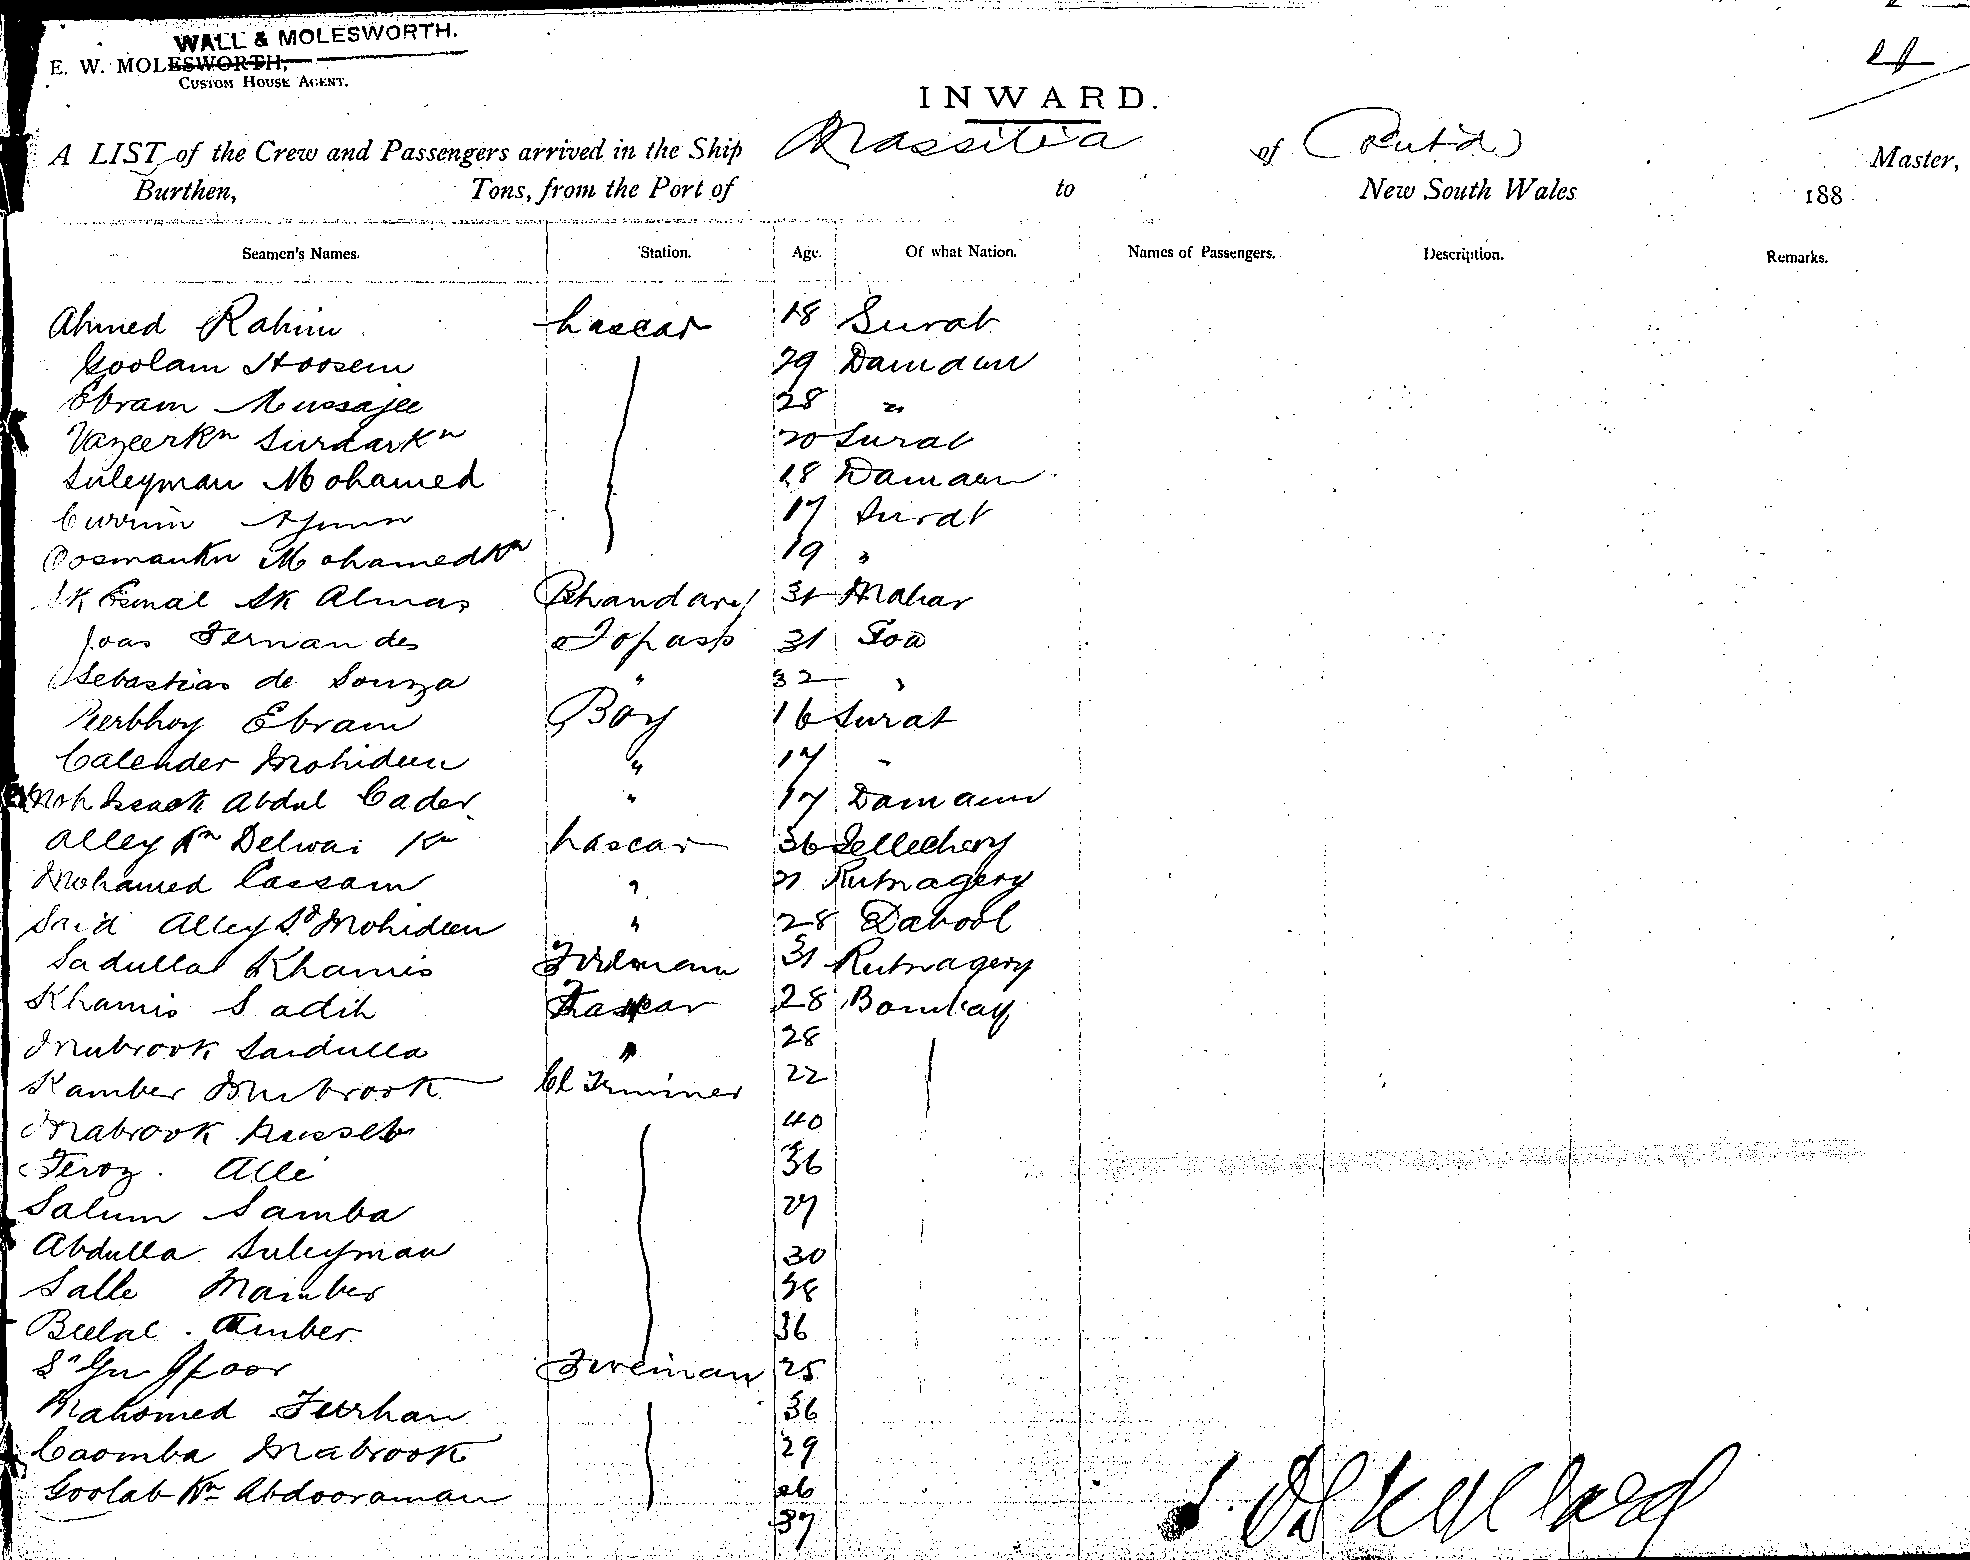 WALL & MOLESWORTH.
E. W. MOLESWORTH,
CUSTOM HOUSE AGENT.
INWARD.
A LIST of the Crew and Passengers arrived in the Ship Massilia of Contd Master,
Burthen, Tons, from the Port of to New South Wales 188
Seamen's Names. Station. Age. Of what Nation. Names of Passengers. Description. Remarks.
Ahmed Rahim Lascar 18 Surat
Goolam Hoosein 29 Damaun
Ebram Mussajee 28 "
Vazeerkn Surdarkn 20 Surat
Suleyman Mohamed 18 Damaun
Currim 17 Surat
Oosmankn Mohamedkn 19 "
Sk Sk Almas Bhandary 31 Malwar
Joas Fernandes Topass 31 Goa
Sebastias de Souza " 32 "
Peerbhoy Ebram Boy 16 Surat
Calender Mohideen " 17 "
Moh Isaack Abdul Cader " 17 Damaun
Alley Kn Delwai Kn Lascar 36 Tellechery
Mohamed Cassam " 21 Rutnagery
Said Alley Sd Mohideen " 28 Dabool
Sadulla Khamis Fireman 31 Rutnagery
Khamis Sadik 28 Bombay
Mubrook Saidulla " 28
Kamber Mubrook Cl Trimmer 22
Mabrook 40
Feroz Alli 36
Salum Samba 27
Abdulla Suleyman 30
Salle Mamber 38
Beelal Amber 36
Gffoor Fireman 25
Mahomed Ferhan 36
Coomba Mabrook 29
Goolab Kn Abdooraman 26
37